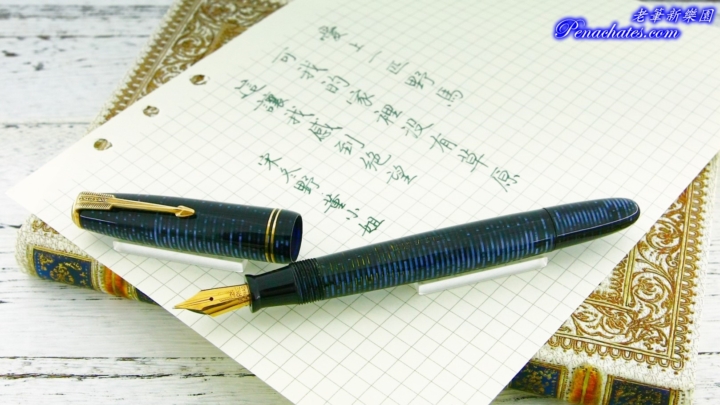 老筆新樂園
Penachates.com
愛上一匹野馬
可我的家裡沒有草原
這讓我感到絕望
宋冬野 董小姐